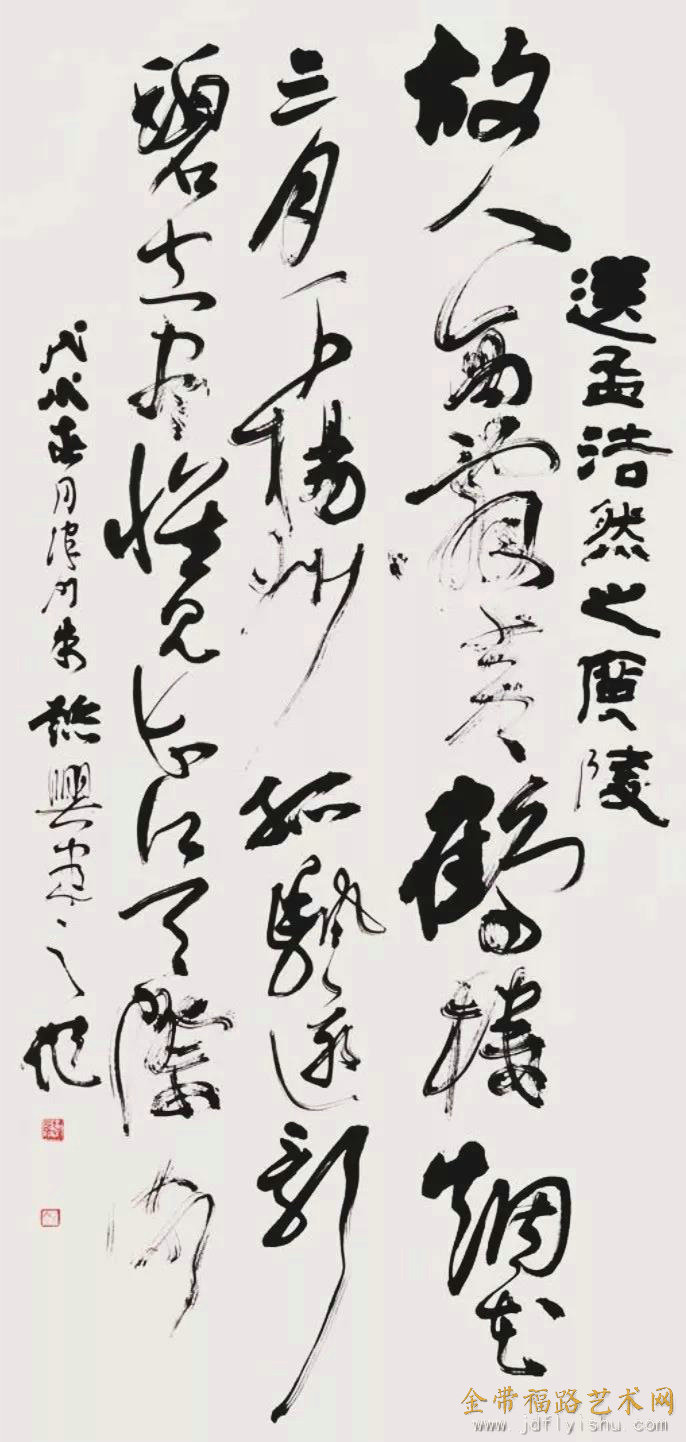 送孟浩然之廣陵
故人西辭黃鶴樓烟花
三月下揚州孤颿遠影
碧空盡惟見長江天際流
戊戌春月津門朱興書之
金带福路艺术网
www.jdflyishu.com